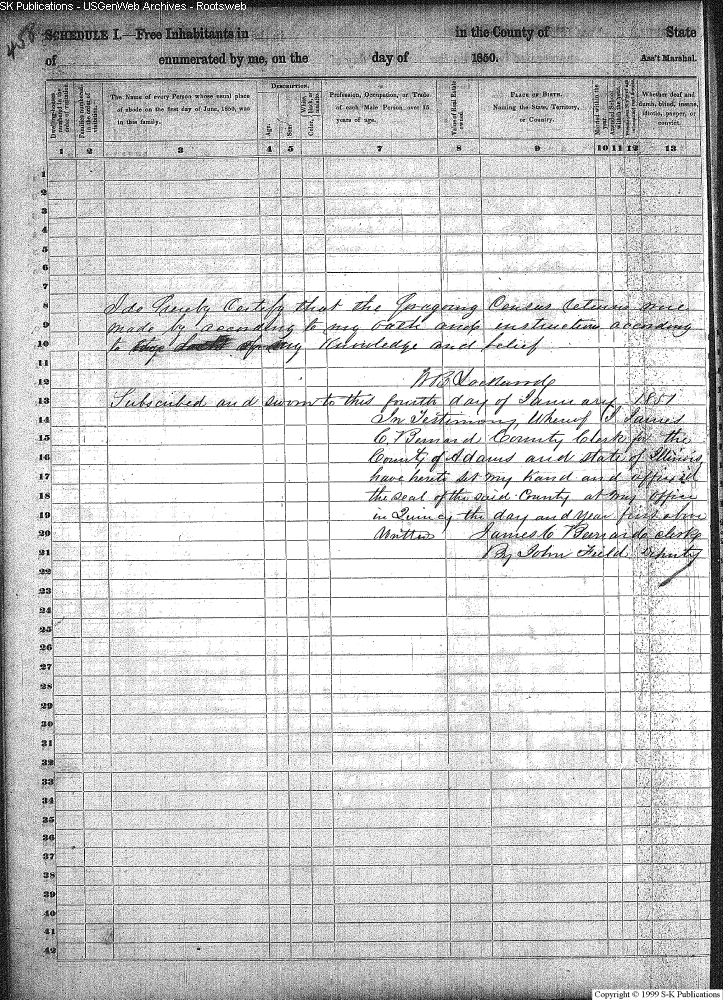 SK Publications - USGenWeb Archives - Rootsweb
458
SCHEDULE I.—Free Inhabitants in in the County of State
of enumerated by me, on the day of 1850. Ass't Marshal.
Dwelling-houses numbered in the order of visitation.
Families numbered in the order of visitation.
The Name of every Person whose usual place of abode on the first day of June, 1850, was in this family.
DESCRIPTION.
Age.
Sex.
White, black, or mulatto.
Color,
Profession, Occupation, or Trade of each Male Person over 15 years of age.
Value of Real Estate owned.
PLACE OF BIRTH.
Naming the State, Territory, or Country.
Married within the year.
Whether deaf and dumb, blind, insane, idiotic, pauper, or convict.
1 2 3 4 5 6 7 8 9 10 11 12 13
1
2
3
4
5
6
7
8 I do hereby Certify that the foregoing Census returns were
9 made by according to my oath and instructions according
10 to my Knowledge and belief
11
12 Lockwood
13 Subscribed and sworn to this fourth day of January 1851
14 In Testimony Whereof I James
15 C. Bernard County Clerk for the
16 County of Adams and state of Illinois
17 have hereto set my hand and affixed
18 the seal of the said County at my office
19 in Quincy the day and year first above
20 written James C Bernard clerk
21 By John Field deputy
22
23
24
25
26
27
28
29
30
31
32
33
34
35
36
37
38
39
40
41
42
Copyright © 1999 S-K Publications